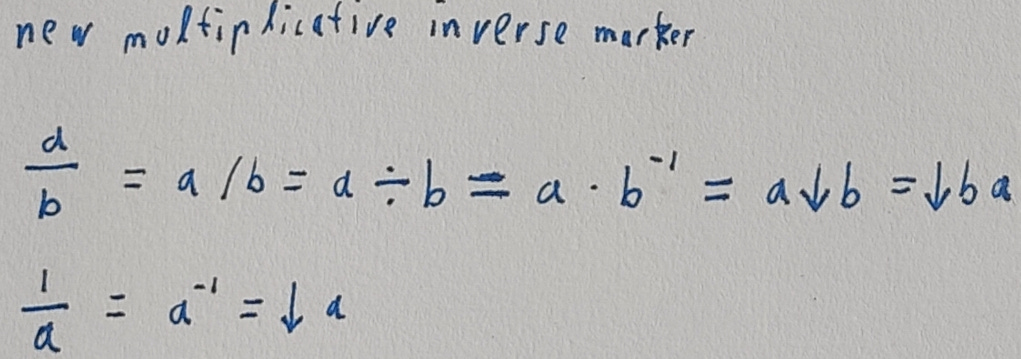 new multiplicative inverse marker
a/b = a /b = a ÷ b = a · b⁻¹ = a↓b = ↓b a
1/a = a⁻¹ = ↓ a